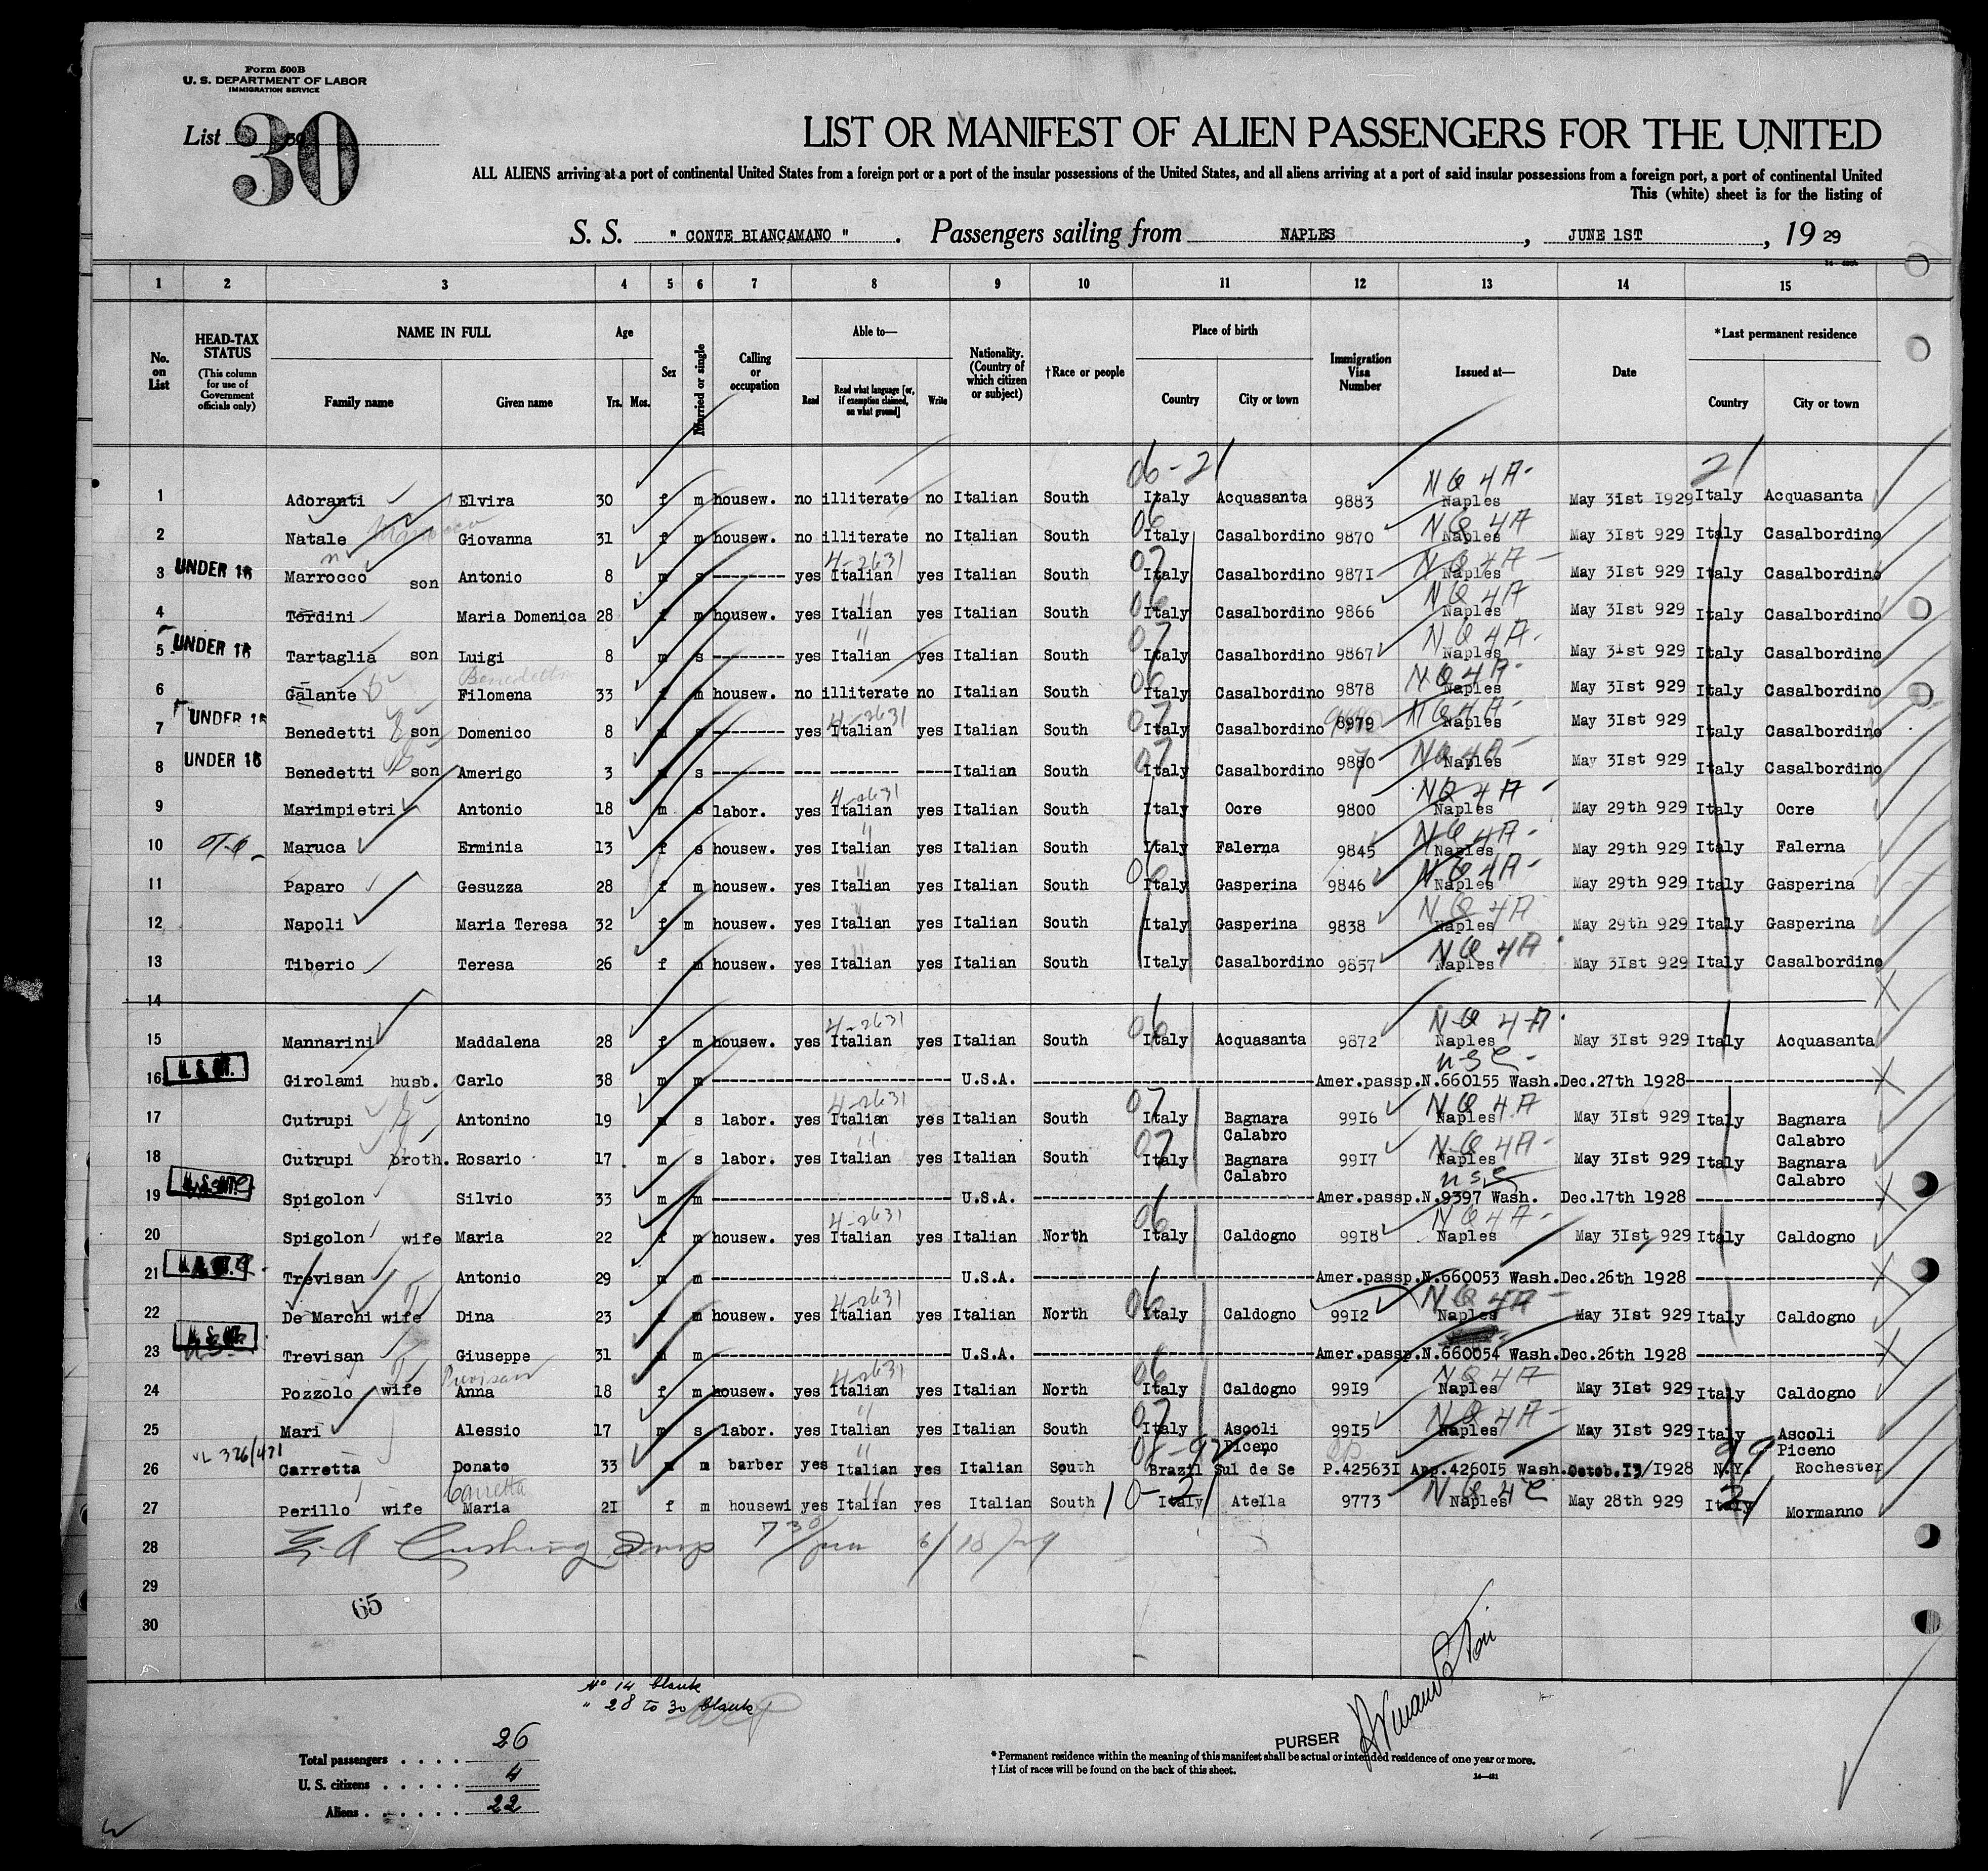 Form 500B
U. S. DEPARTMENT OF LABOR
IMMIGRATION SERVICE
List 30
30
LIST OR MANIFEST OF ALIEN PASSENGERS FOR THE UNITED
ALL ALIENS arriving at a port of continental United States from a foreign port or a port of the insular possessions of the United States, and all aliens arriving at a port of said insular possessions from a foreign port, a port of continental United
This (white) sheet is for the listing of
S. S. " CONTE BIANCAMANO ". Passengers sailing from NAPLES, JUNE 1ST, 19 29
1 2 3 4 5 6 7 8 9 10 11 12 13 14 15
No. on List
HEAD-TAX STATUS (This column for use of Government officials only)
NAME IN FULL Family name Given name
Age Yrs. Mos.
Sex
Married or single
Calling or occupation
Able to— Read Read what language [or, if exemption claimed, on what ground] Write
Nationality. (Country of which citizen or subject)
†Race or people
Place of birth Country City or town
Immigration Visa Number
Issued at—
Date
*Last permanent residence Country City or town
06-21 21
1 Adoranti Elvira 30 f m housew. no illiterate no Italian South Italy Acquasanta 9883 NQ4A- Naples May 31st 1929 Italy Acquasanta
2 Natale Marrocco Giovanna 31 f m housew. no illiterate no Italian South 06 Italy Casalbordino 9870 NQ4A Naples May 3Ist 929 Italy Casalbordino
3 UNDER 16 Marrocco son Antonio 8 m s --------- yes 4-2631 Italian yes Italian South 07 Italy Casalbordino 987I NQ4A- Naples May 3Ist 929 Italy Casalbordino
4 Tordini Maria Domenica 28 f m housew. yes " Italian yes Italian South 06 Italy Casalbordino 9866 NQ4A Naples May 3Ist 929 Italy Casalbordino
5 UNDER 16 Tartaglia son Luigi 8 m s --------- yes " Italian yes Italian South 07 Italy Casalbordino 9867 NQ4A- Naples May 31st 929 Italy Casalbordino
6 Galante Benedetti Filomena 33 f m housew. no illiterate no Italian South 06 Italy Casalbordino 9878 NQ4A- Naples May 3Ist 929 Italy Casalbordino
7 UNDER 16 Benedetti son Domenico 8 m s --------- yes 4-2631 Italian yes Italian South 07 Italy Casalbordino 8979 NQ4A- Naples May 3Ist 929 Italy Casalbordino
8 UNDER 16 Benedetti son Amerigo 3 s --------- --- --------- ---- Italian South 07 Italy Casalbordino 9880 NQ4A- Naples May 3Ist 929 Italy Casalbordino
9 Marimpietri Antonio 18 m s labor. yes 4-2631 Italian yes Italian South Italy Ocre 9800 NQ4A- Naples May 29th 929 Italy Ocre
10 Maruca Erminia 13 f s housew. yes " Italian yes Italian South Italy Falerna 9845 NQ4A- Naples May 29th 929 Italy Falerna
11 Paparo Gesuzza 28 f m housew. yes " Italian yes Italian South 06 Italy Gasperina 9846 NQ4A- Naples May 29th 929 Italy Gasperina
12 Napoli Maria Teresa 32 f m housew. yes " Italian yes Italian South Italy Gasperina 9838 NQ4A Naples May 29th 929 Italy Gasperina
13 Tiberio Teresa 26 f m housew. yes " Italian yes Italian South Italy Casalbordino 9857 NQ4A Naples May 3Ist 929 Italy Casalbordino
14
15 Mannarini Maddalena 28 f m housew. yes 4-2631 Italian yes Italian South 06 Italy Acquasanta 9872 NQ4A- Naples May 3Ist 929 Italy Acquasanta
16 Girolami husb. Carlo 38 m m --------- U.S.A. --------- USC- Amer.passp.N.660155 Wash. Dec.27th 1928 ---------
17 Cutrupi Antonino 19 m s labor. yes 4-2631 Italian yes Italian South 07 Italy Bagnara Calabro 99I6 NQ4A Naples May 3Ist 929 Italy Bagnara Calabro
18 Cutrupi broth. Rosario 17 m s labor. yes " Italian yes Italian South 07 Italy Bagnara Calabro 99I7 NQ4A- Naples May 3Ist 929 Italy Bagnara Calabro
19 Spigolon Silvio 33 m m --------- U.S.A. --------- USC Amer.passp.N.9397 Wash. Dec.17th 1928 ---------
20 Spigolon wife Maria 22 f m housew. yes 4-2631 Italian yes Italian North 06 Italy Caldogno 99I8 NQ4A- Naples May 3Ist 929 Italy Caldogno
21 Trevisan Antonio 29 m m --------- U.S.A. --------- Amer.passp.N.660053 Wash. Dec.26th 1928 ---------
22 De Marchi wife Dina 23 f m housew. yes 4-2631 Italian yes Italian North 06 Italy Caldogno 99I2 NQ4A- Naples May 3Ist 929 Italy Caldogno
23 Trevisan Giuseppe 31 m m --------- U.S.A. --------- Amer.passp.N.660054 Wash. Dec.26th 1928 ---------
24 Pozzolo wife Anna 18 f m housew. yes 4-2631 Italian yes Italian North 06 Italy Caldogno 99I9 NQ4A Naples May 3Ist 929 Italy Caldogno
25 Mari Alessio 17 m s labor. yes " Italian yes Italian South 07 Italy Ascoli Piceno 99I5 NQ4A- Naples May 3Ist 929 Italy Ascoli Piceno
26 VL 326/471 Carretta Donato 33 m m barber yes " Italian yes Italian South Brazil Sul de Se P.42563I App.4260I5 Wash. Octob.I3/I928 99 N.Y. Rochester
27 Perillo wife Carretta Maria 2I f m housewi yes " Italian yes Italian South 10-21 Italy Atella 9773 NQ4C Naples May 28th 929 21 Italy Mormanno
28 Cushing Insp 7 30/pm 6/18/29
29
65
30
No 14 blank
" 28 to 30 blank
Total passengers . . . . 26
U. S. citizens . . . . . 4
Aliens . . . . . . 22
PURSER
*Permanent residence within the meaning of this manifest shall be actual or intended residence of one year or more.
† List of races will be found on the back of this sheet.